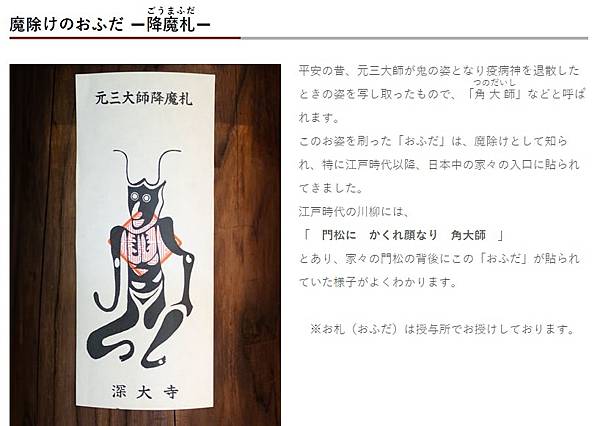 魔除けのおふだ ー降魔札ー
ごうまふだ
元三大師降魔札
深大寺
平安の昔、元三大師が鬼の姿となり疫病神を退散した
ときの姿を写し取ったもので、「角大師」などと呼ば
つのだいし
れます。
このお姿を刷った「おふだ」は、魔除けとして知ら
れ、特に江戸時代以降、日本中の家々の入口に貼られ
てきました。
江戸時代の川柳には、
「　門松に　かくれ顔なり　角大師　」
とあり、家々の門松の背後にこの「おふだ」が貼られ
ていた様子がよくわかります。
※お札（おふだ）は授与所でお授けしております。